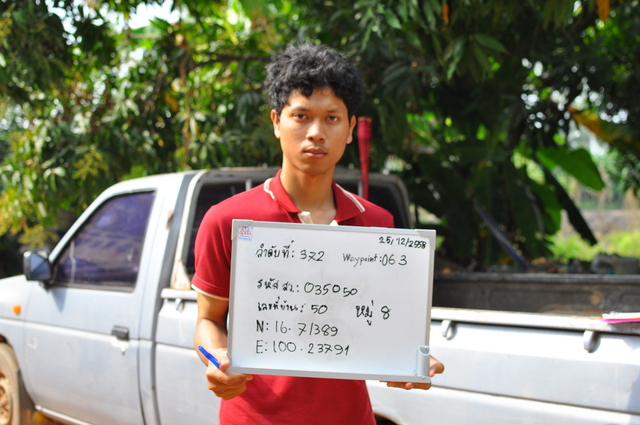 25/12/2558
ลำดับที่: 372 Waypoint: 063
รหัส สว: 035050
เลขที่บ้าน: 50 หมู่ 8
N: 16.71389
E: 100.23791